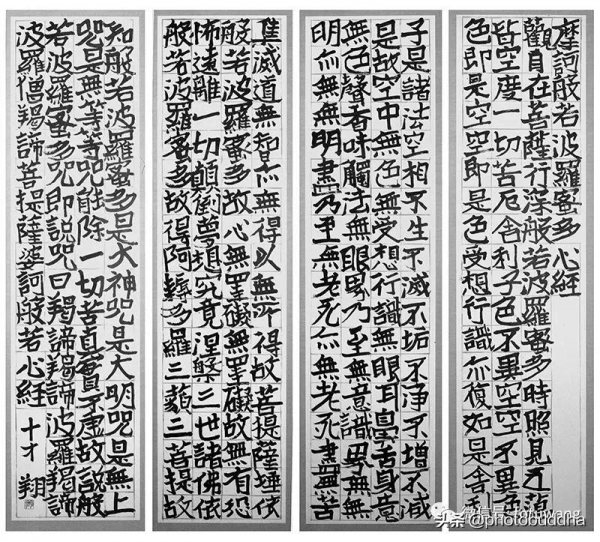 摩訶般若波羅蜜多心経
觀自在菩薩行深般若波羅蜜多時照見五蘊
皆空度一切苦厄舍利子色不異空空不異色
色即是空空即是色受想行識亦復如是舍利
子是諸法空相不生不滅不垢不浄不增不減
是故空中無色無受想行識無眼耳鼻舌身意
無色聲香味觸法無眼界乃至無意識界無無
明亦無無明盡乃至無老死亦無老死盡無苦
集滅道無智亦無得以無所得故菩提薩埵依
般若波羅蜜多故心無罣礙無罣礙故無有恐
怖遠離一切顛倒夢想究竟涅槃三世諸佛依
般若波羅蜜多故得阿耨多羅三藐三菩提故
知般若波羅蜜多是大神咒是大明咒是無上
咒是無等等咒能除一切苦真實不虛故說般
若波羅蜜多咒即說咒曰羯諦羯諦波羅羯諦
波羅僧羯諦菩提薩婆訶般若心経 十才 翔
微信号
头条 @photobuddha